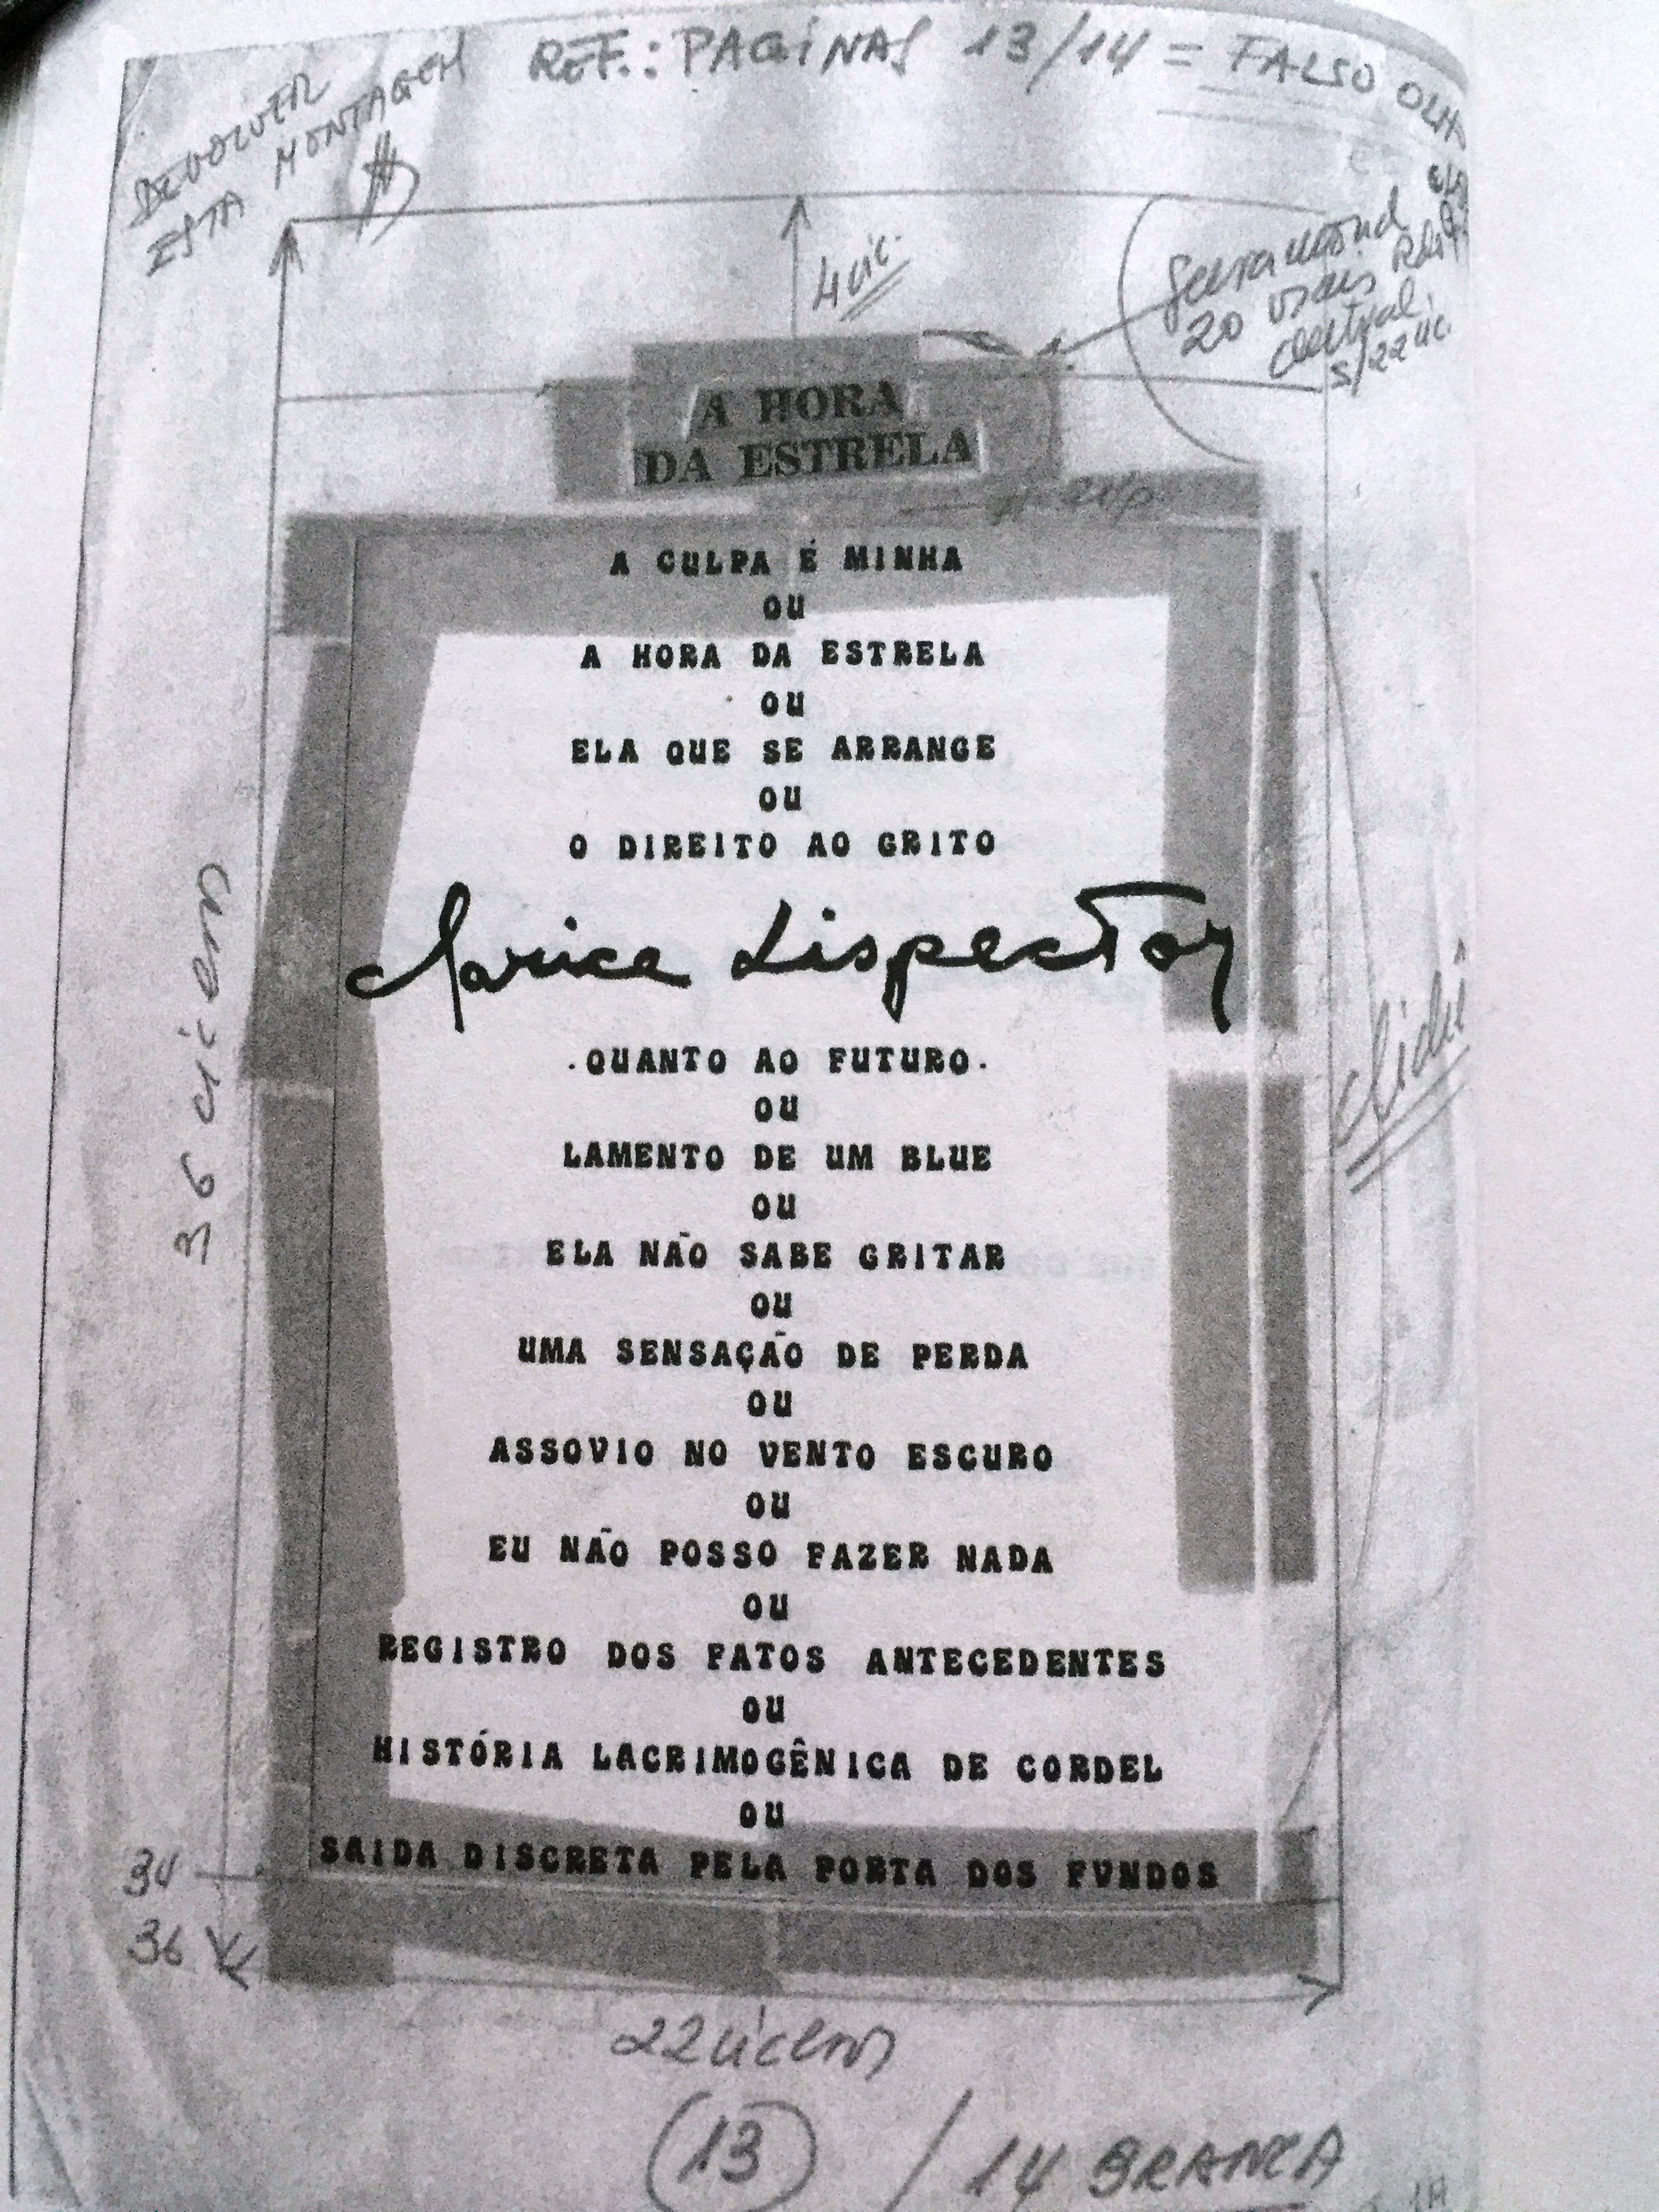 REF.: PAGINAS 13/14 = FALSO OLH
DEVOLVER
ESTA MONTAGEM
4 cic.
20 mais
s/22 cic.
A HORA
DA ESTRELA
A CULPA É MINHA
OU
A HORA DA ESTRELA
OU
ELA QUE SE ARRANGE
OU
O DIREITO AO GRITO
Clarice Lispector
.QUANTO AO FUTURO.
OU
LAMENTO DE UM BLUE
OU
ELA NÃO SABE GRITAR
OU
UMA SENSAÇÃO DE PERDA
OU
ASSOVIO NO VENTO ESCURO
OU
EU NÃO POSSO FAZER NADA
OU
REGISTRO DOS FATOS ANTECEDENTES
OU
HISTÓRIA LACRIMOGÊNICA DE CORDEL
OU
SAIDA DISCRETA PELA PORTA DOS FVNDOS
36 cicero
clichê
34
36
22 ciceros
13 / 14 BRANCA